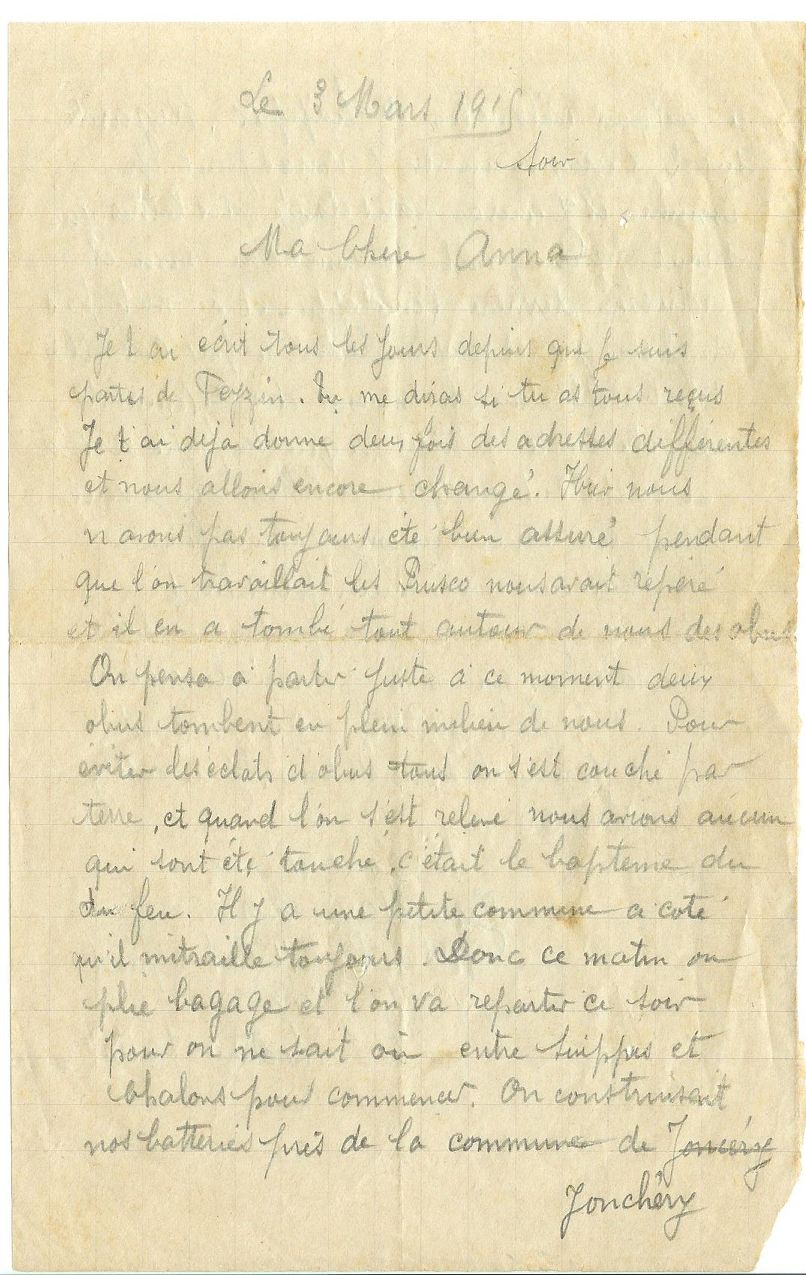 Le 3 Mars 1915
Soir
Ma Chere Anna
Je t ai écrit tous les jours depuis que je suis
partis de Feyzin. Tu me diras si tu as tous reçus
Je t'ai deja donne deux fois des adresses différentes
et nous allons encore changé. Hier nous
n avons pas toujours été bien assuré pendant
que l'on travaillait les Prusco nous avait repéré
et il en a tombé tout autour de nous des obus
On pensa a partir juste a ce moment deux
obus tombent en plein milieu de nous. Pour
éviter des éclats d'obus tous on s'est couché par
terre, et quand l'on s'est relevé nous avions aucun
qui sont été touché, c'était le bapteme du
du feu. Il y a une petite commune a coté
qu'il mitraille toujours. Donc ce matin on
plie bagage et l'on va repartir ce soir
pour on ne sait où entre Suippes et
Chalons pour commencer. On construisait
nos batteries près de la commune de
Jonchéry